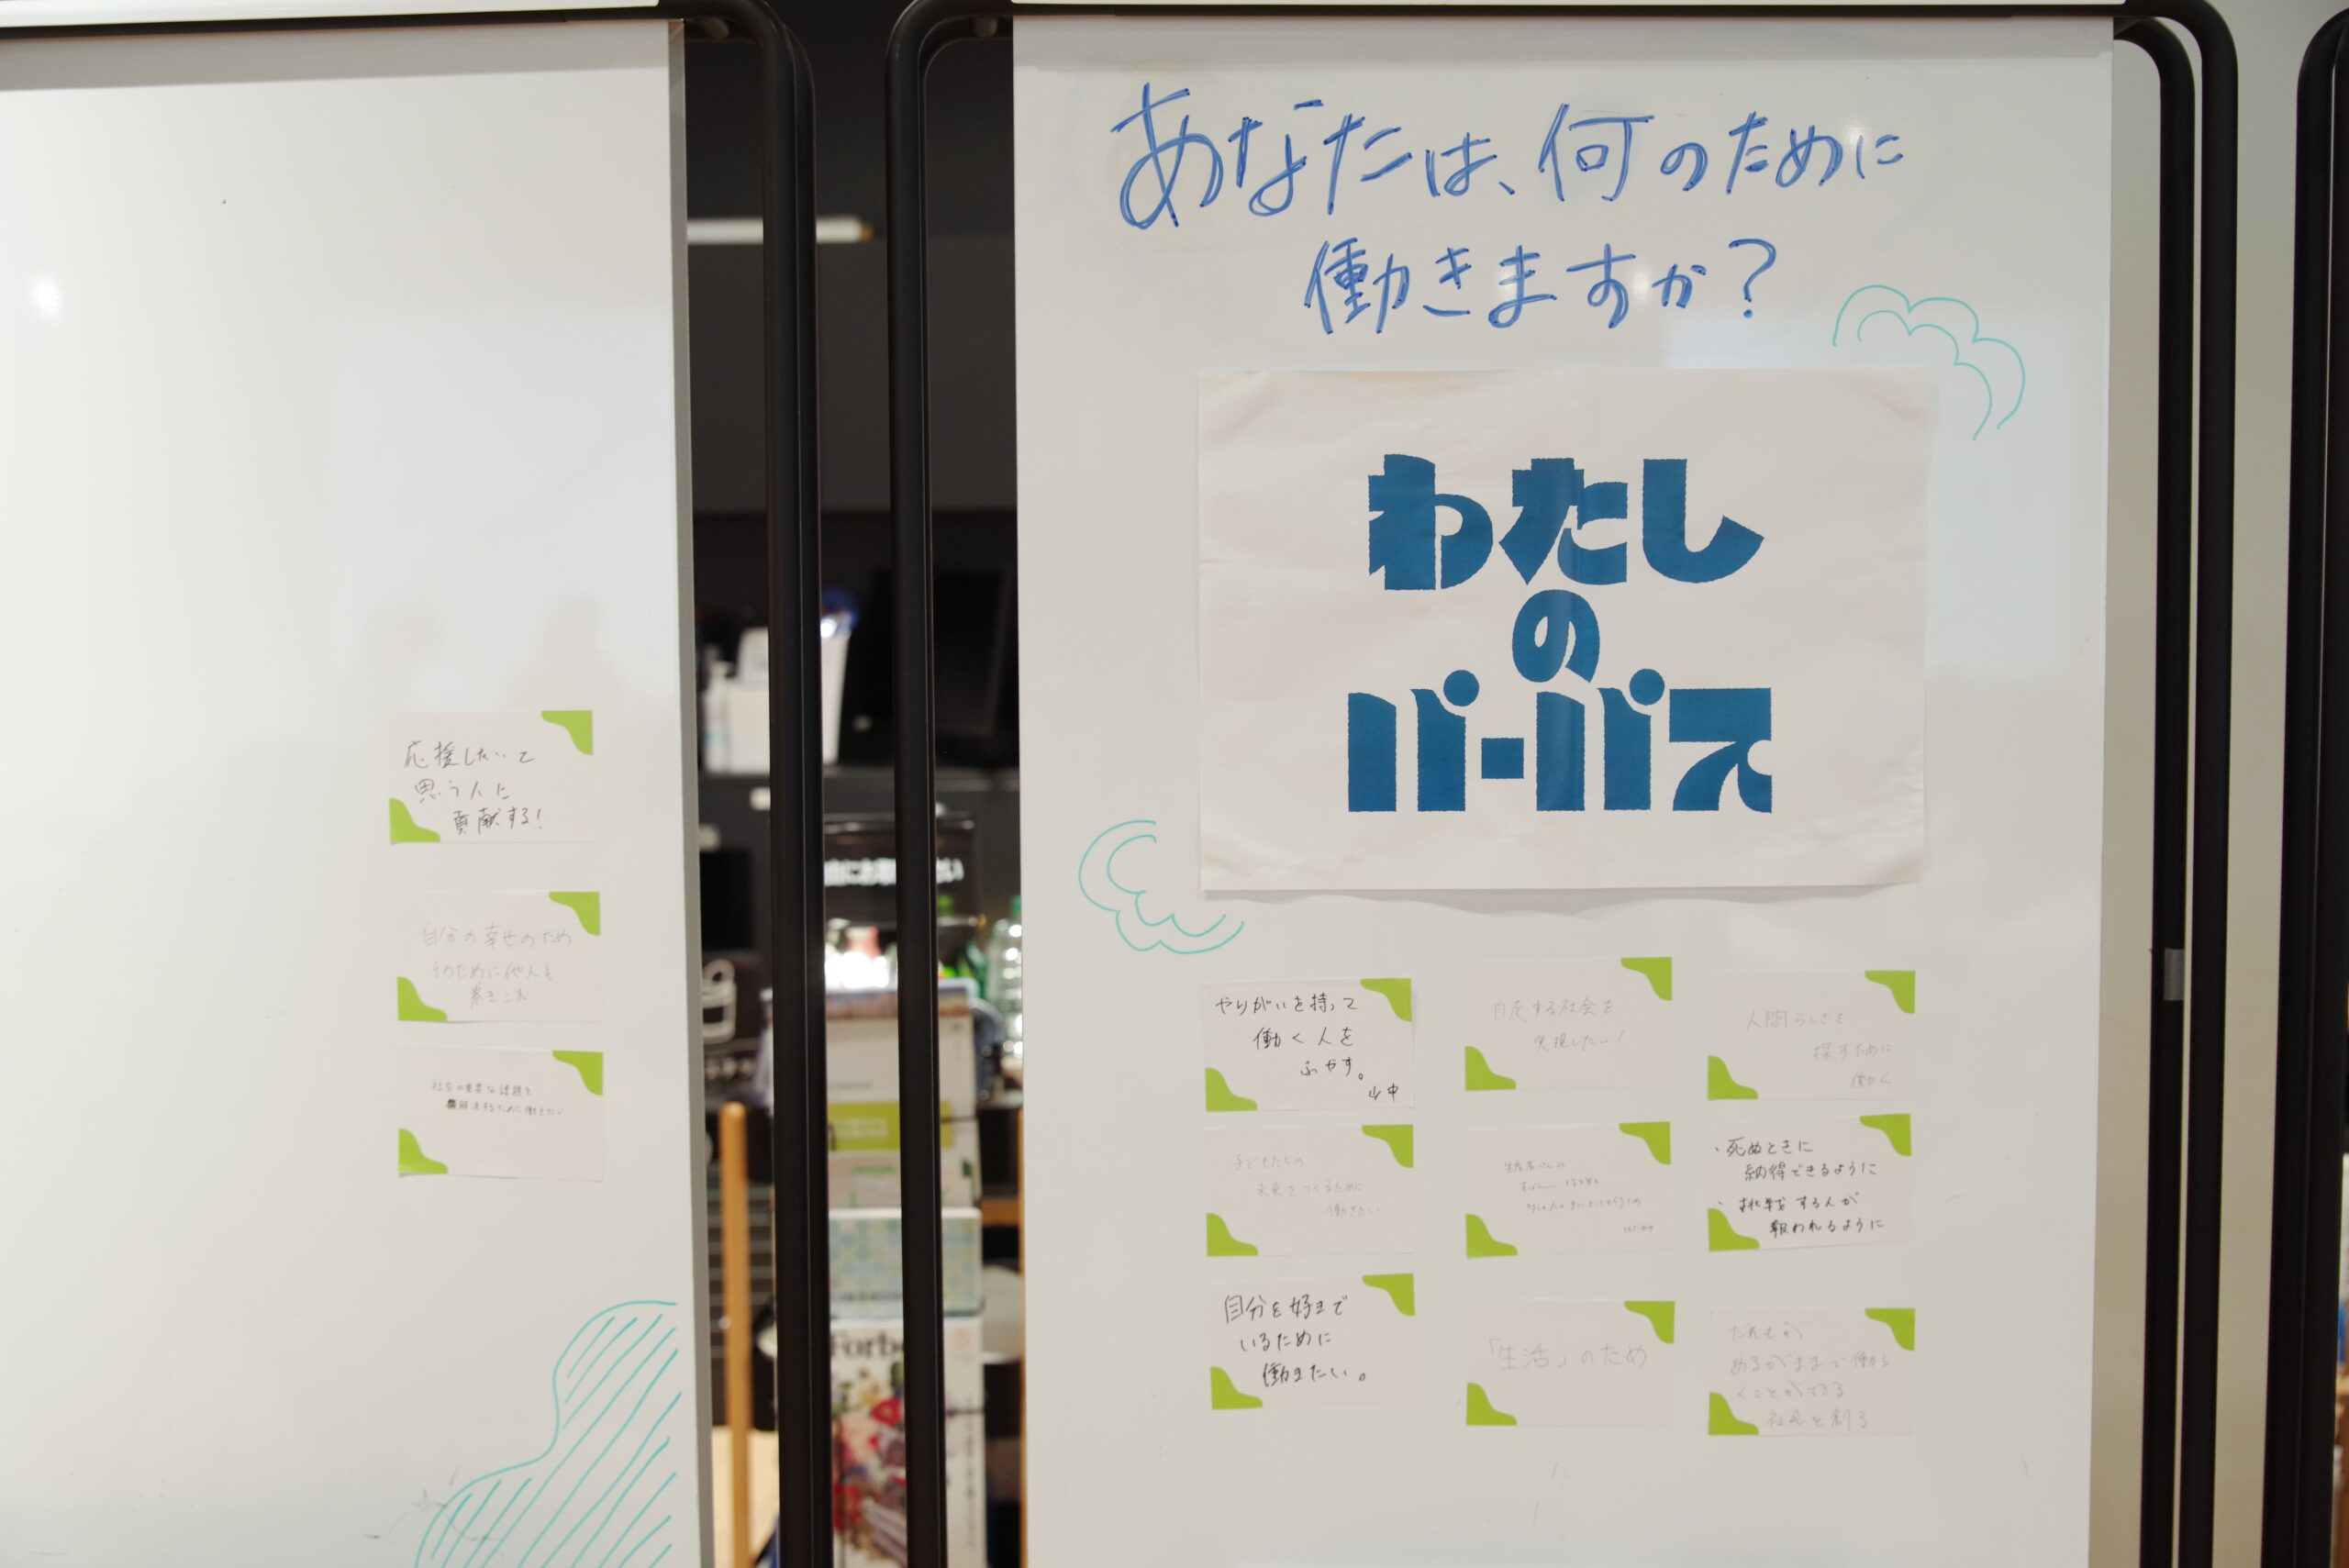 あなたは、何のために
働きますか?
わたし
の
パーパス
応援したいと
思う人に
貢献する!
自分の幸せのため
そのために他人も
巻きこむ
解決するために働きたい
やりがいを持って
働く人を
ふやす。
山中
自走する社会を
実現したい!
人間らしさを
探すために
働く
子どもたちの
未来をつくるために
働きたい
・死ぬときに
納得できるように
・挑戦する人が
報われるように
自分を好きで
いるために
働きたい。
「生活」のため
だれもが
あるがままで働
くことができる
社会を創る
Forbe